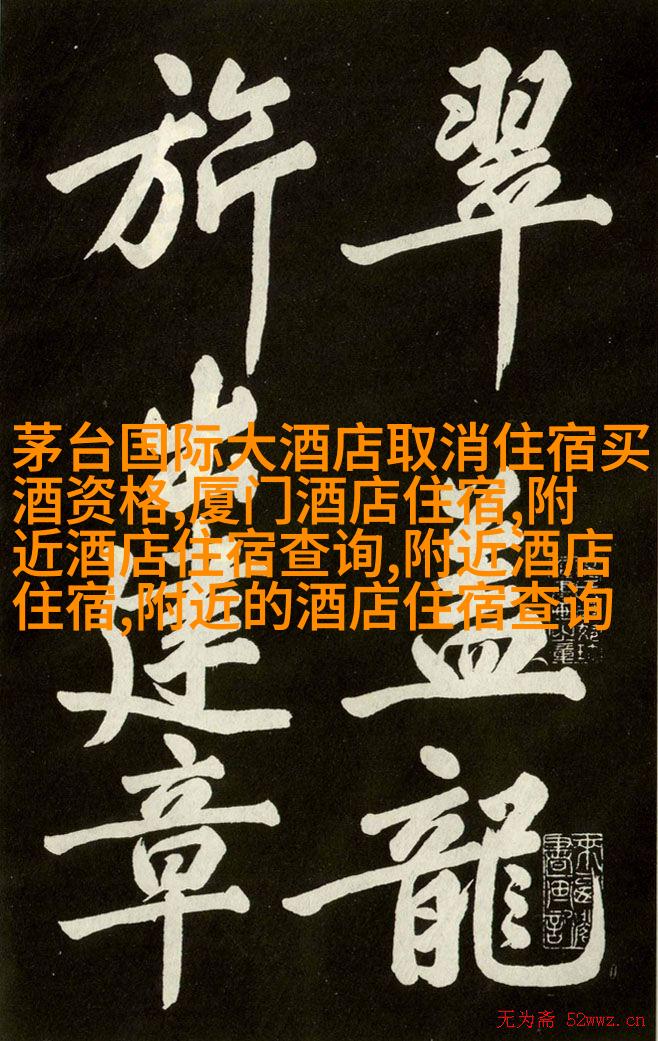 翠盖龍
旂出建章
茅台国际大酒店取消住宿买
酒资格,厦门酒店住宿,附
近酒店住宿查询,附近酒店
住宿,附近的酒店住宿查询
无为斋 52wwz.cn